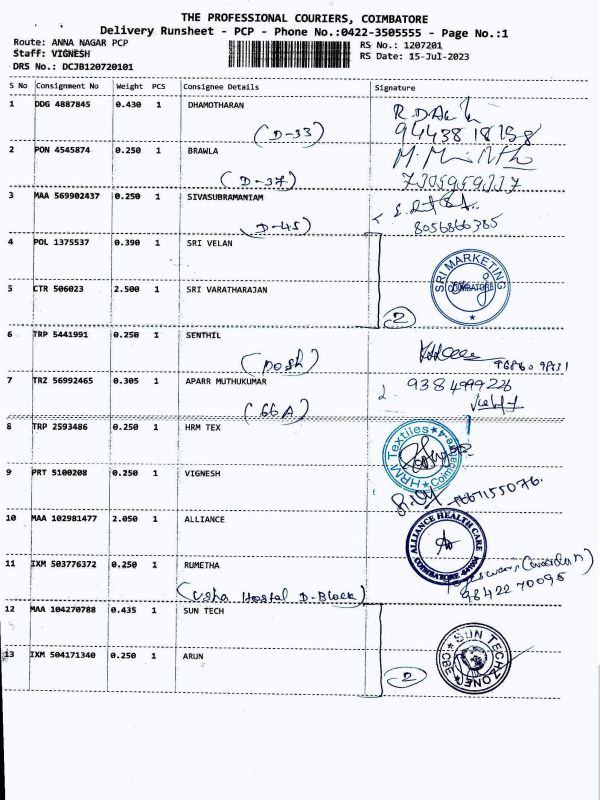 THE PROFESSIONAL COURIERS, COIMBATORE
Delivery Runsheet - PCP - Phone No.:0422-3505555 - Page No.:1
Route: ANNA NAGAR PCP RS No.: 1207201
Staff: VIGNESH RS Date: 15-Jul-2023
DRS No.: DCJB120720101
S No Consignment No Weight PCS Consignee Details Signature
1 DDG 4887845 0.430 1 DHAMOTHARAN
(D-33) 94438 18158
2 PON 4545874 0.250 1 BRAWLA
(D-37)
3 MAA 569902437 0.250 1 SIVASUBRAMANIAM
D-45) 8056866385
4 POL 1375537 0.390 1 SRI VELAN
SRI MARKETING
COIMBATORE
5 CTR 506023 2.500 1 SRI VARATHARAJAN
2
6 TRP 5441991 0.250 1 SENTHIL
(posh)
7 TRZ 56992465 0.305 1 APARR MUTHUKUMAR
9384999226
(66A)
8 TRP 2593486 0.250 1 HRM TEX
HRM Textiles
9 PRT 5100208 0.250 1 VIGNESH
10 MAA 102981477 2.050 1 ALLIANCE
ALLIANCE HEALTH CARE
COIMBATORE
11 IXM 503776372 0.250 1 RUMETHA
98422 70095
(Usha Hostal D-Block)
12 MAA 104270788 0.435 1 SUN TECH
SUN TECHZONE
CBE
13 IXM 504171340 0.250 1 ARUN
2